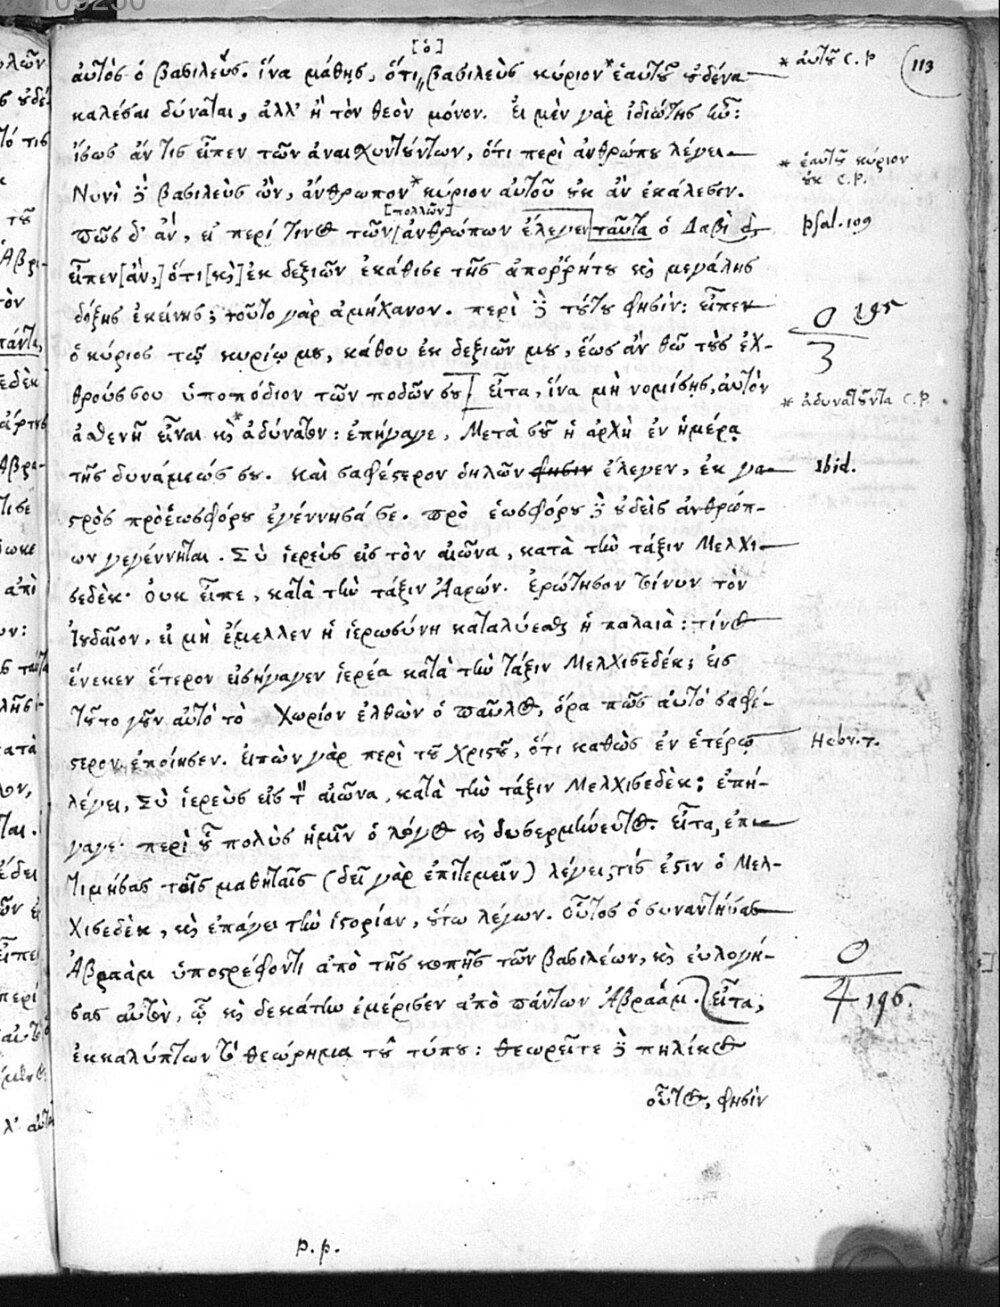 [ὁ]
αὐτὸς ὁ βασιλεὺς. ἵνα μάθῃς, ὅτι βασιλεὺς κύριον* ἑαυτοῦ οὐδένα
* αὐτοῦ C. P
113
καλέσαι δύναται, ἀλλ' ἢ τὸν θεὸν μόνον. Εἰ μὲν γὰρ ἰδιώτης ἦν:
ἴσως ἄν τις εἶπεν τῶν ἀναισχυντούντων, ὅτι περὶ ἀνθρώπου λέγει
* ἑαυτοῦ κύριον
οὐκ C. P.
Νυνὶ δὲ βασιλεὺς ὢν, ἄνθρωπον* κύριον αὐτοῦ οὐκ ἂν ἐκάλεσεν.
[πολλῶν]
πῶς δ' ἂν, εἰ περί τινος τῶν ἀνθρώπων ἔλεγεν ταῦτα ὁ Δαβὶδ,
psal. 109
εἶπεν [ἂν,] ὅτι [καὶ] ἐκ δεξιῶν ἐκάθισε τῆς ἀπορρήτου καὶ μεγάλης
δόξης ἐκείνης; τοῦτο γὰρ ἀμήχανον. περὶ δὲ τούτου φησίν: εἶπεν
O 195
3
ὁ κύριος τῷ κυρίῳ μου, κάθου ἐκ δεξιῶν μου, ἕως ἂν θῶ τοὺς ἐχ-
θρούς σου ὑποπόδιον τῶν ποδῶν σου εἶτα, ἵνα μὴ νομίσῃς, αὐτὸν
* ἀδυνατοῦντα C. P.
ἀσθενῆ εἶναι καὶ* ἀδύνατον: ἐπήγαγε, Μετὰ σοῦ ἡ ἀρχὴ ἐν ἡμέρᾳ
τῆς δυνάμεώς σου. καὶ σαφέστερον δηλῶν φησιν ἔλεγεν, ἐκ γα-
Ibid.
στρὸς πρὸ ἑωσφόρου ἐγέννησά σε. πρὸ ἑωσφόρου δὲ οὐδεὶς ἀνθρώπ-
ων γεγέννηται. Σὺ ἱερεὺς εἰς τὸν αἰῶνα, κατὰ τὴν τάξιν Μελχι-
σεδέκ. Οὐκ εἶπε, κατὰ τὴν τάξιν Ἀαρών. Ἐρώτησον τοίνυν τὸν
Ἰουδαῖον, εἰ μὴ ἔμελλεν ἡ ἱερωσύνη καταλύεσθαι ἡ παλαιὰ: τίνος
ἕνεκεν ἕτερον εἰσήγαγεν ἱερέα κατὰ τὴν τάξιν Μελχισεδέκ; εἰς
τοῦτο γοῦν αὐτὸ τὸ χωρίον ἐλθὼν ὁ Παῦλος, ὅρα πῶς αὐτὸ σαφέ-
στερον ἐποίησεν. εἰπὼν γὰρ περὶ τοῦ χριστοῦ, ὅτι καθὼς ἐν ἑτέρῳ
Hebr. 7.
λέγει, Σὺ ἱερεὺς εἰς τὸν αἰῶνα, κατὰ τὴν τάξιν Μελχισεδὲκ: ἐπή-
γαγε· περὶ οὗ πολὺς ἡμῖν ὁ λόγος καὶ δυσερμήνευτος. εἶτα, ἐπι-
τιμήσας τοῖς μαθηταῖς (δεῖ γὰρ ἐπιτεμεῖν) λέγει, τίς ἐστιν ὁ Μελ-
χισεδὲκ, καὶ ἐπάγει τὴν ἱστορίαν, οὕτω λέγων. Οὗτος ὁ συναντήσας
Ἀβραὰμ ὑποστρέφοντι ἀπὸ τῆς κοπῆς τῶν βασιλέων, καὶ εὐλογή-
O
4 196.
σας αὐτὸν, ᾧ καὶ δεκάτην ἐμέρισεν ἀπὸ πάντων Ἀβραάμ. εἶτα,
ἐκκαλύπτων τὸ θεώρημα τοῦ τύπου: θεωρεῖτε δὲ πηλίκος
οὗτος, φησὶν
p. p.